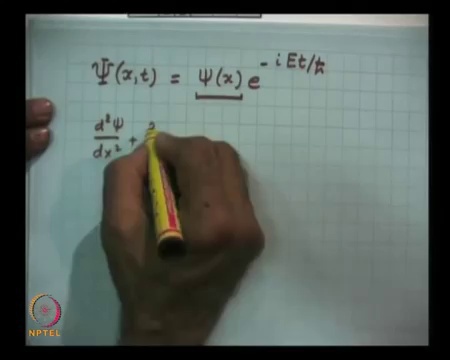 Ψ(x,t) = ψ(x) e^{-iEt/ħ}
d²ψ/dx² + 2
NPTEL